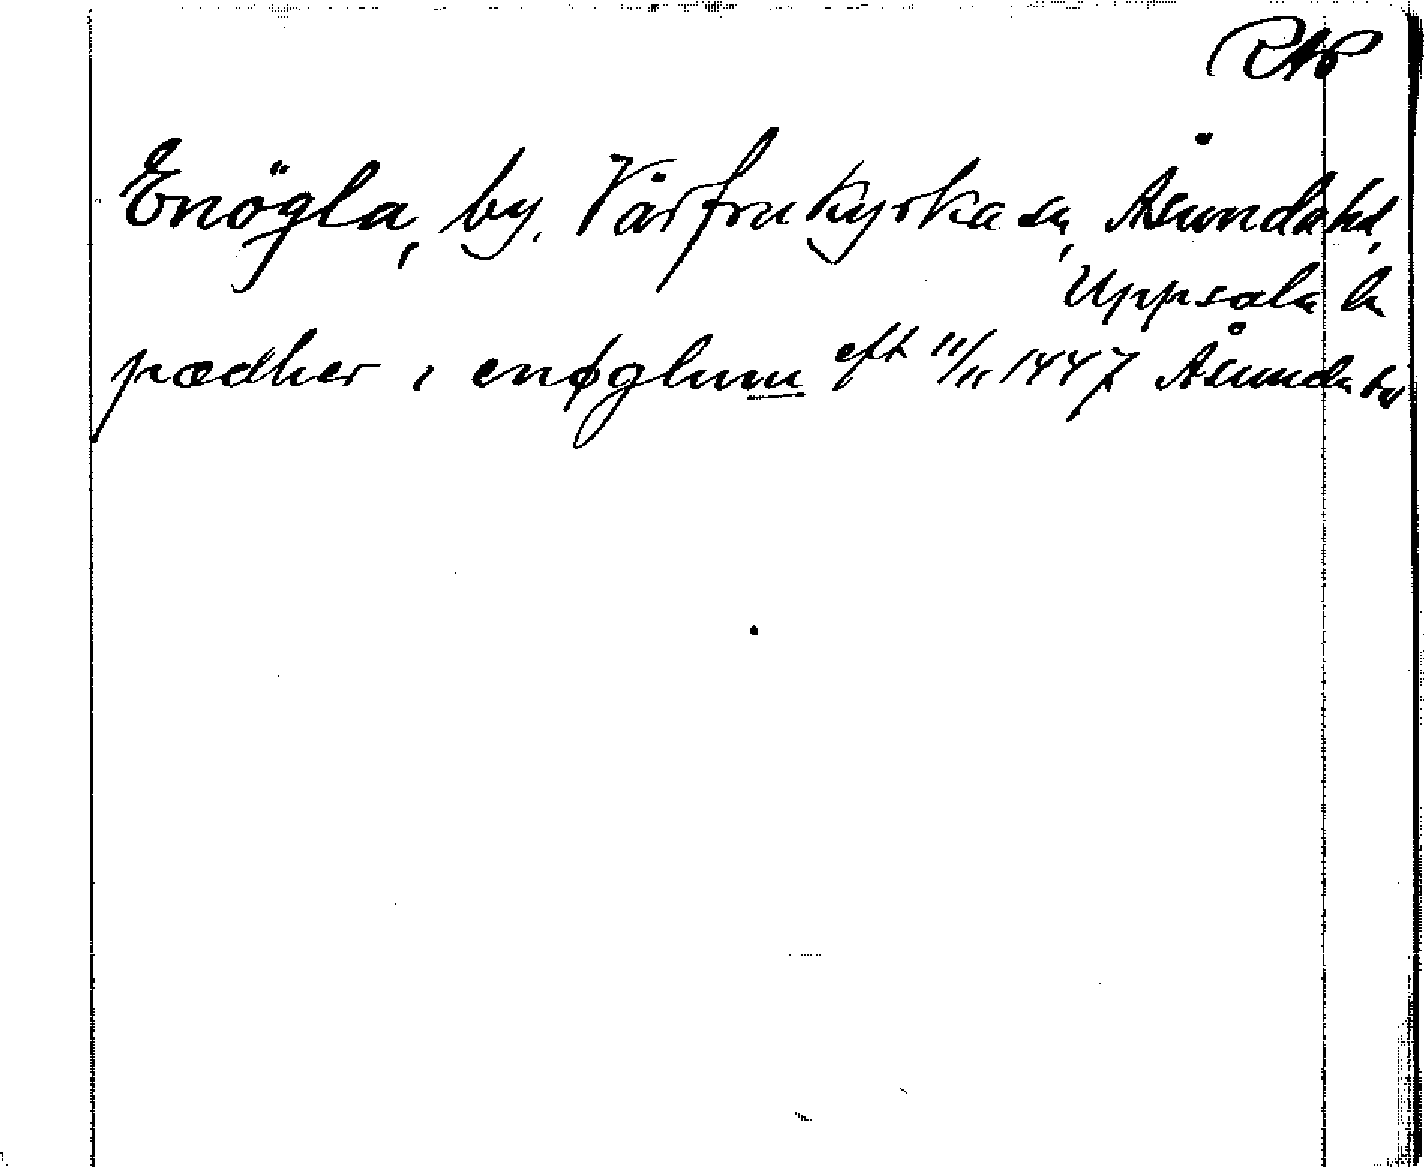 RAP
Enögla, by, Vårfrukyrka sn, Åsunda hd,
Uppsala ln
pædher i enøglum eft 11/11 1447 Åsunda hd